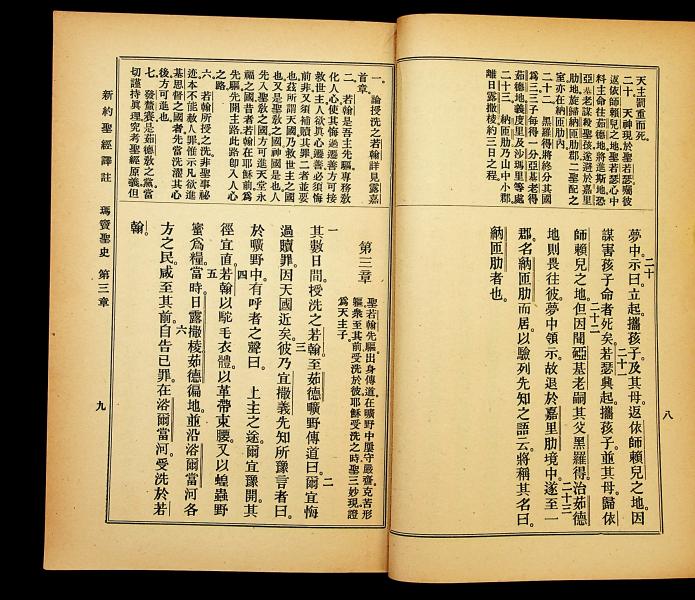 天主罰重而死。
二十。天神現於聖若瑟。囑彼
返依師賴兒之地。聖若瑟心中
料主命往茹德地。將進斯地。恐
亞基老謀殺聖孩。遂避於嘉里
肋地。旋歸納匝肋郡。二聖配之
室亦在納匝肋內。
二十二。黑羅得將終。分其國
爲三。三子每得一分。亞基老得
茹德地。義度里及沙瑪里等處。
二十三。納匝肋乃山中小郡。
離日露撒棱約三日之程。
二十
夢中示曰。立起。攜孩子及其母。返依師賴兒之地。因
二十一
謀害孩子命者死矣。若瑟興起。攜孩子。並其母。歸依
二十二
師賴兒之地。但因聞亞基老嗣其父黑羅得。治茹德
二十三
地。則畏往彼。夢中領示。故退於嘉里肋境中。遂至一
郡。名納匝肋而居。以驗列先知之語云。將稱其名曰。
納匝肋者也。
八
一。論授洗之若翰。詳見露嘉
首章。
二。若翰是吾主先驅。專務敎
化人心。使其悔過遷善。方可接
救世主。人欲眞心遷善。必須悔
前非。又須補贖其罪。二者並要
也。茲所謂天國。乃救世主之國
也。又是聖敎之國。神國是也。人
先入聖敎之國。方可進天堂永
福之國。昔者若翰在耶穌前。爲
先驅。先開主路。此路卽入人心
之路。
六。若翰所授之洗。非聖事秘
迹。本不能赦人罪。惟示凡欲進
基思督之國者。先當洗濯其心。
後方可進。
七。發釐賽。是茹德敎之黨。當
切謹持眞理。究考聖經原義。但
第三章
聖若翰先驅出身傳道。在曠野中屢守嚴齋。克苦形
軀。衆至其前受洗於彼。耶穌受洗之時。聖三妙現。證
爲天主子。
一
二
其數日間。授洗之若翰。至茹德曠野傳道曰。爾宜悔
三
過贖罪。因天國近矣。彼乃宜撒義先知所豫言者。曰
四
於曠野中。有呼者之聲曰。上主之途。爾宜豫開。其
五
徑宜直。若翰以駝毛衣體。以革帶束腰。又以蝗蟲野
蜜爲糧。當時日露撒棱茹德徧地。並沿浴爾當河各
六
方之民。咸至其前。自告已罪。在浴爾當河。受洗於若
翰。
新約聖經譯註　瑪竇聖史　第三章　九